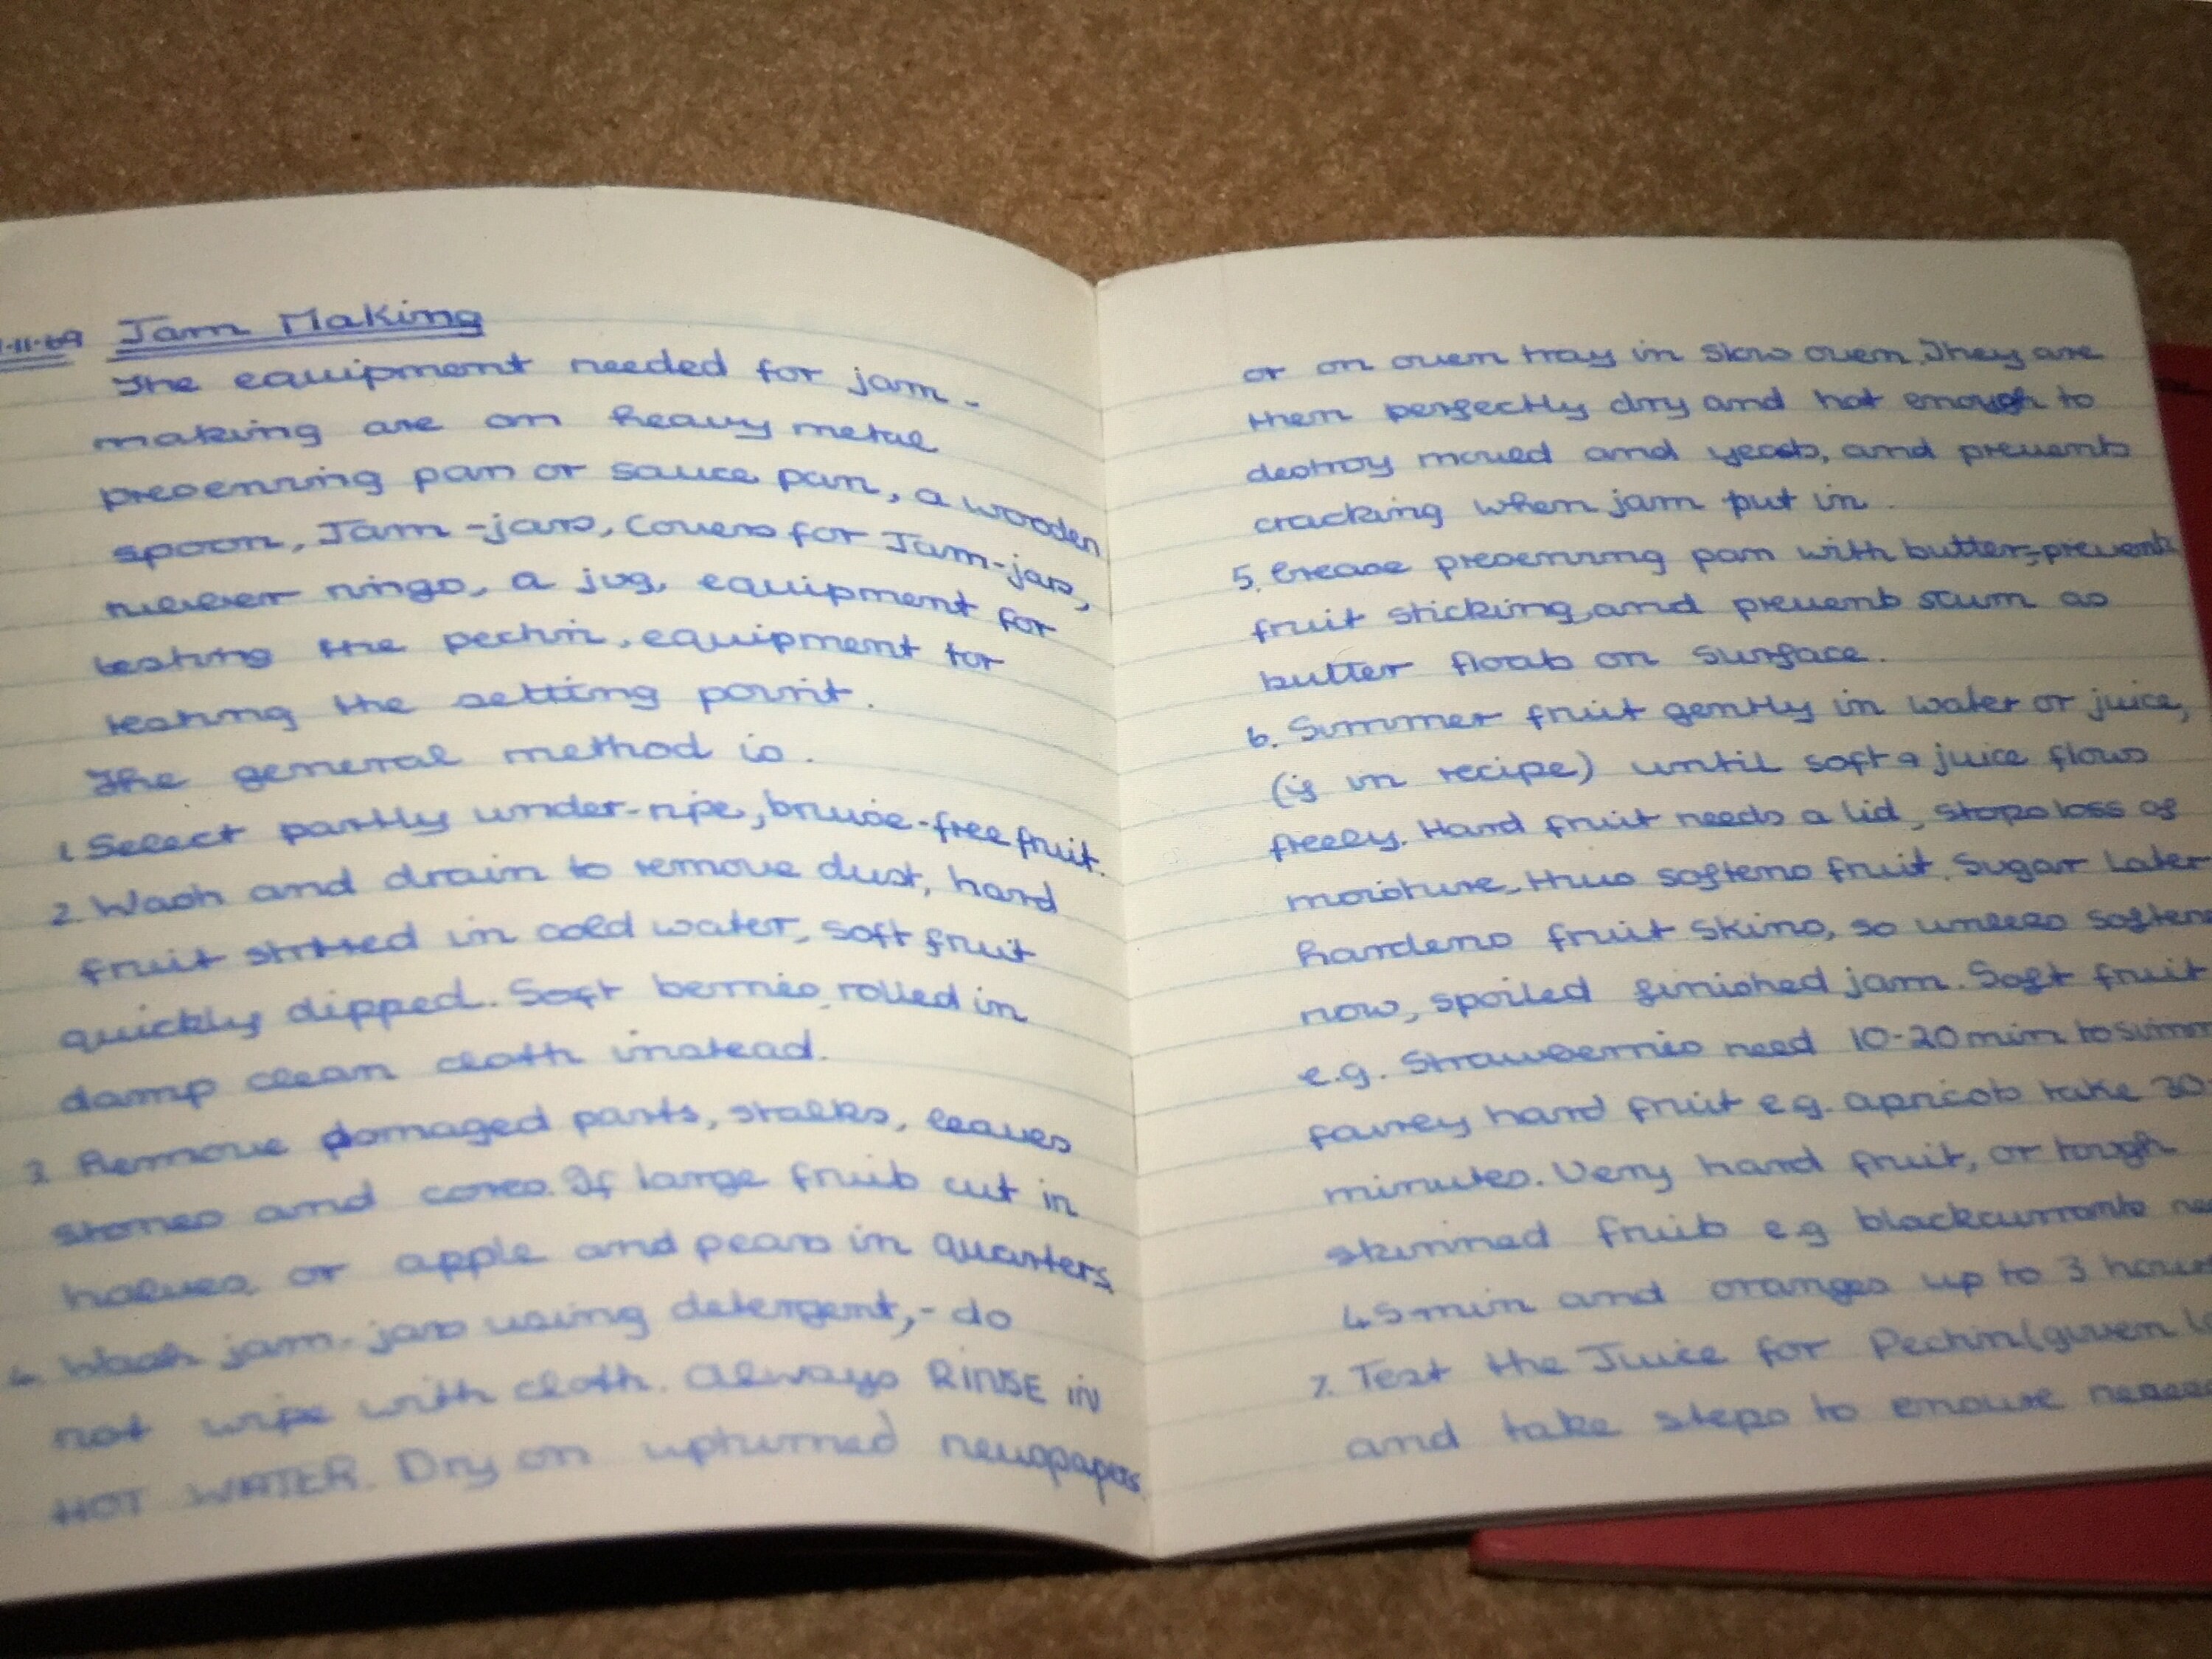 11-69 Jam Making
The equipment needed for jam-
making are an heavy metal
preserving pan or sauce pan, a wooden
spoon, Jam-jars, Covers for Jam-jars,
rubber rings, a jug, equipment for
testing the pechin, equipment for
testing the setting point.
The general method is.
1. Select partly under-ripe, bruise-free fruit.
2. Wash and drain to remove dust, hard
fruit in cold water, soft fruit
quickly dipped. Soft berries rolled in
damp clean cloth instead.
3. Remove damaged parts, stalks, leaves
stones and cores. If large fruits cut in
halves, or apple and pears in quarters
4. Wash jam-jars using detergent,- do
not wipe with cloth. Always RINSE IN
HOT WATER. Dry on upturned newspapers
or on oven tray in slow oven. They are
then perfectly dry and hot enough to
destroy mould and yeasts, and prevents
cracking when jam put in.
5. Grease preserving pan with butter,-prevents
fruit sticking, and prevents scum as
butter floats on surface.
6. Summer fruit gently in water or juice,
(if in recipe) until soft & juice flows
freely. Hard fruit needs a lid, stops loss of
moisture, thus softens fruit. Sugar later
hardens fruit skins, so unless soften
now, spoiled finished jam. Soft fruit
e.g. Strawberries need 10-20 min to
fairly hard fruit e.g. apricots take 30
minutes. Very hard fruit, or tough
skinned fruits e.g blackcurrants
45 min and oranges up to 3 hours
7. Test the Juice for Pechin (given
and take steps to ensure